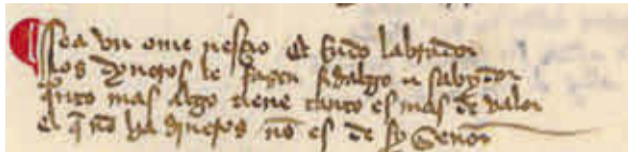 Sea vn ome nesçio et rudo labrador
los dyneros le fazen fidalgo e sabydor
quto mas algo tiene tanto es mas de valor
el q̃ no ha dineros nõ es de sy señor